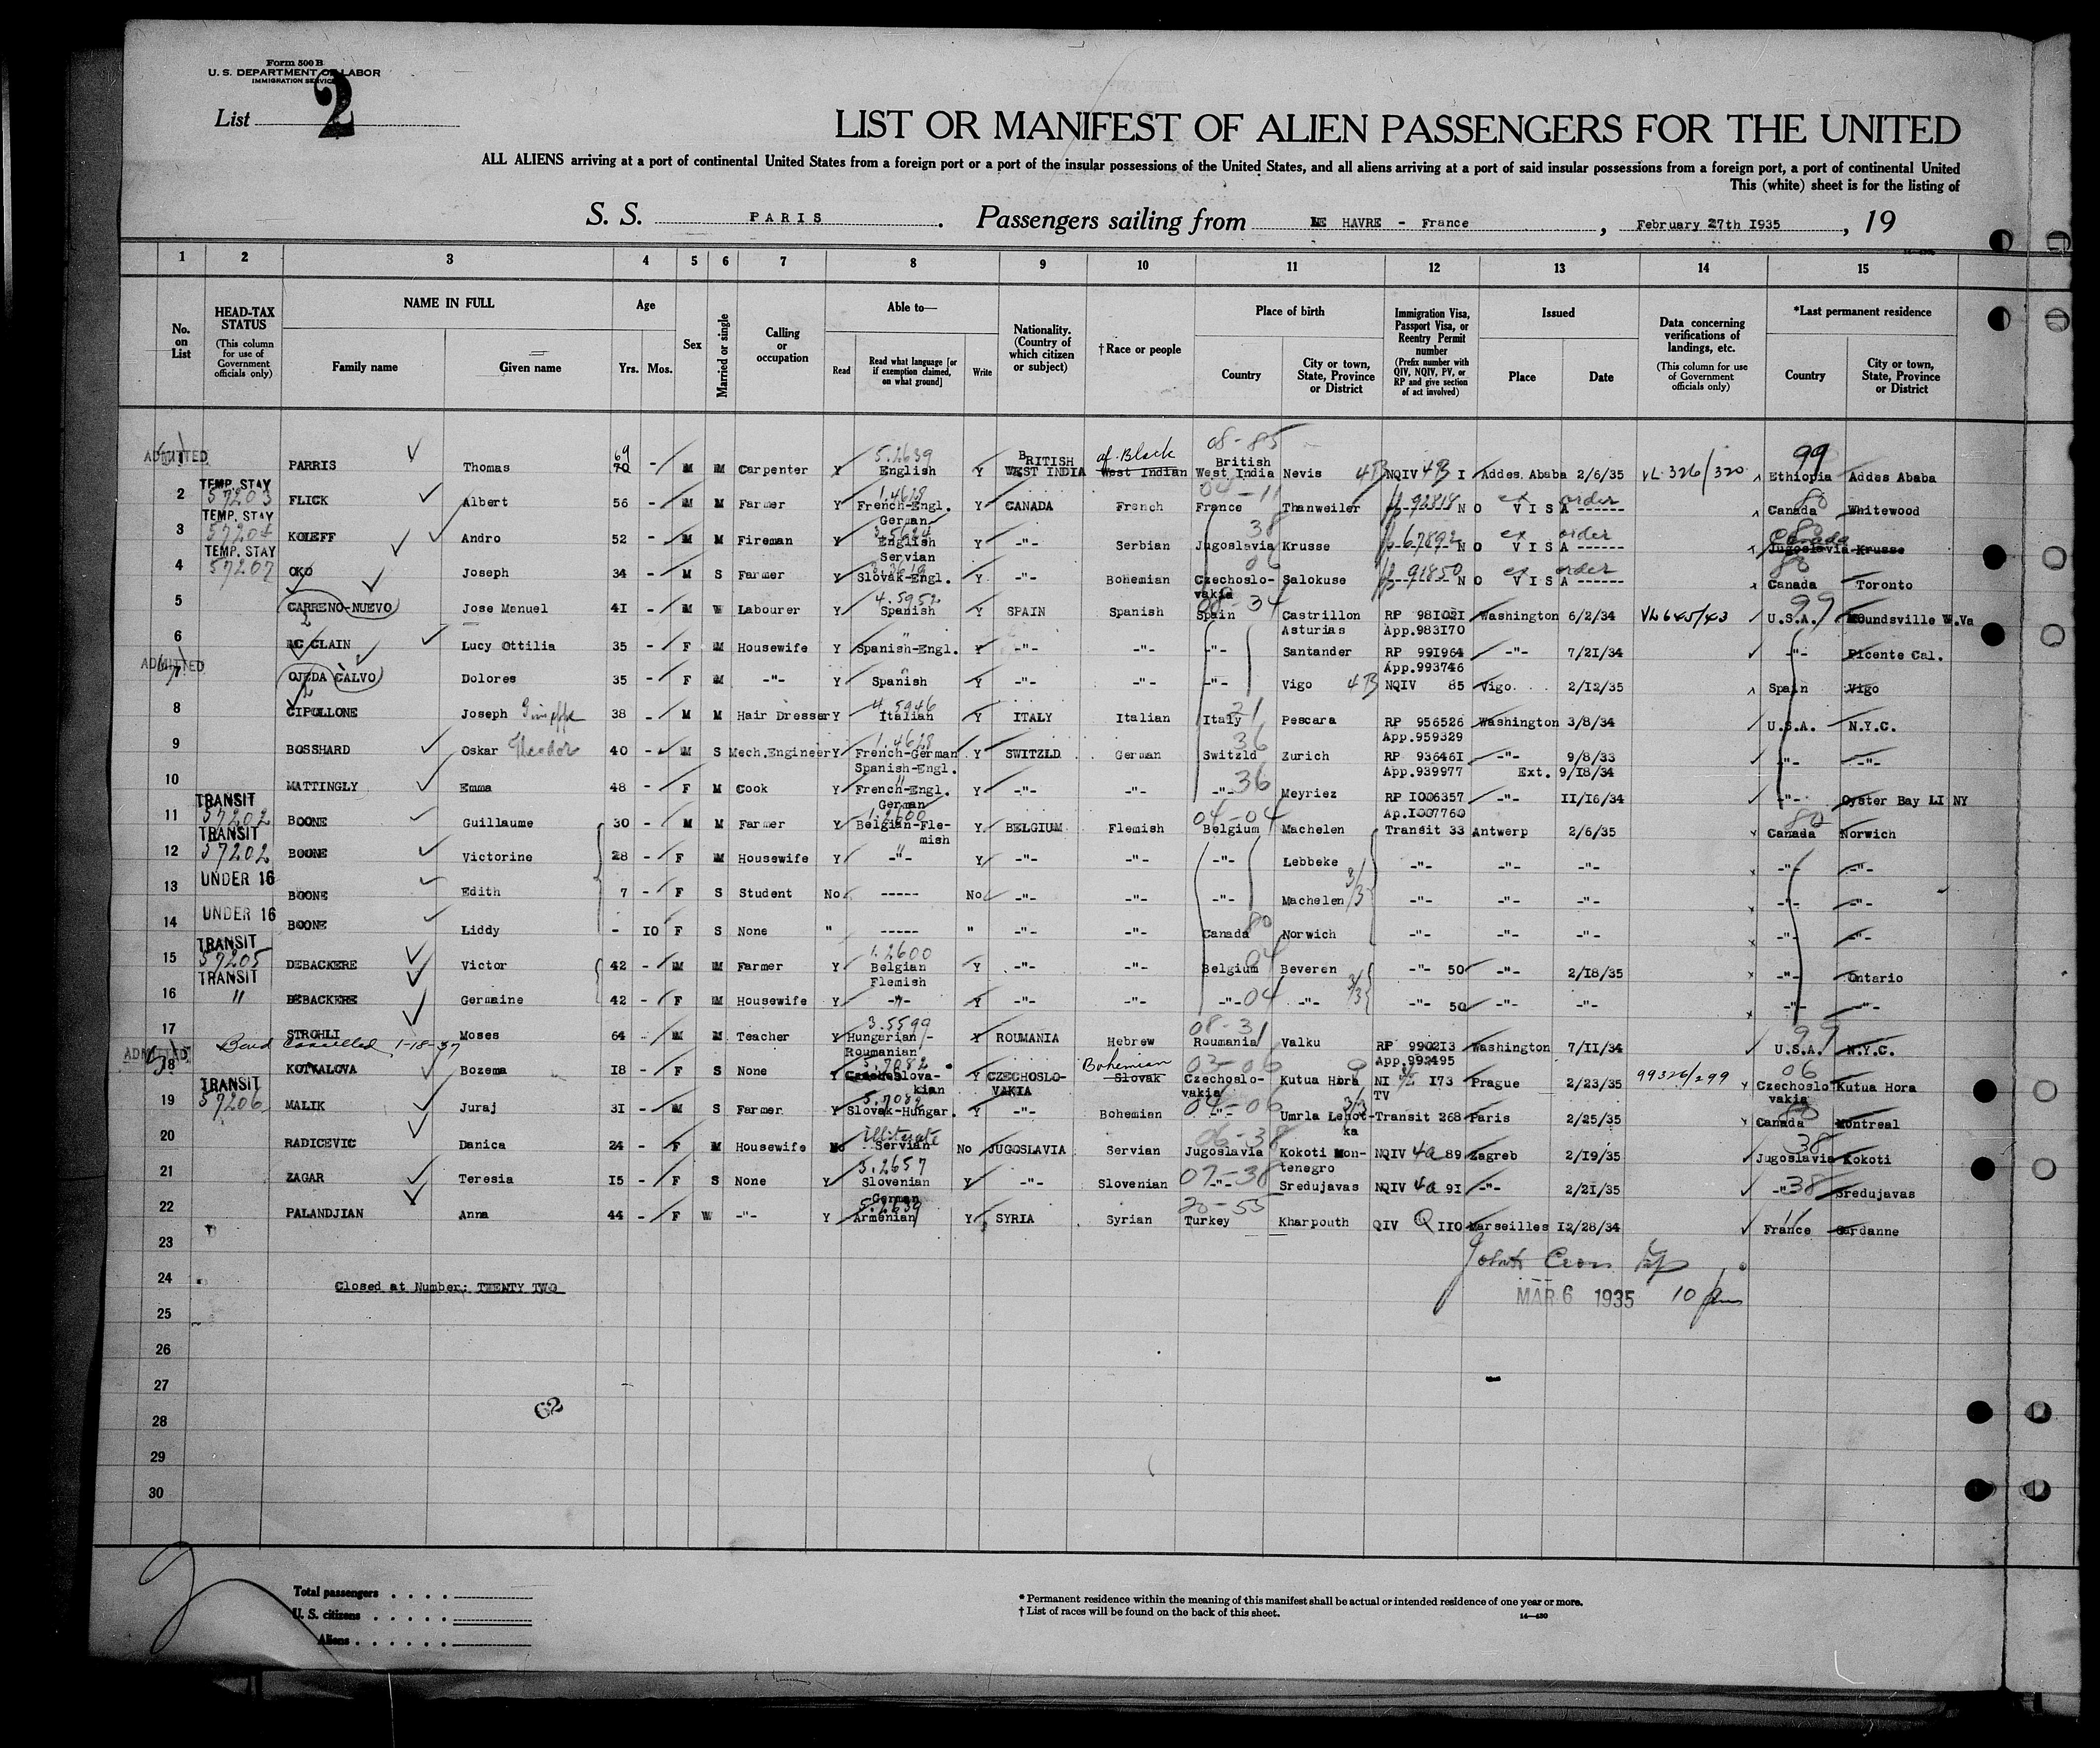 Form 500 B
U. S. DEPARTMENT OF LABOR
IMMIGRATION SERVICE
List 2
LIST OR MANIFEST OF ALIEN PASSENGERS FOR THE UNITED
ALL ALIENS arriving at a port of continental United States from a foreign port or a port of the insular possessions of the United States, and all aliens arriving at a port of said insular possessions from a foreign port, a port of continental United
This (white) sheet is for the listing of
S. S. PARIS. Passengers sailing from LE HAVRE - France, February 27th 1935, 19
1 2 3 4 5 6 7 8 9 10 11 12 13 14 15
No. on List
HEAD-TAX STATUS (This column for use of Government officials only)
NAME IN FULL
Family name Given name
Age
Yrs. Mos.
Sex
Married or single
Calling or occupation
Able to—
Read
Read what language [or if exemption claimed, on what ground]
Write
Nationality. (Country of which citizen or subject)
†Race or people
Place of birth
Country
City or town, State, Province or District
Immigration Visa, Passport Visa, or Reentry Permit number (Prefix number with QIV, NQIV, PV, or RP and give section of act involved)
Issued
Place Date
Data concerning verifications of landings, etc. (This column for use of Government officials only)
*Last permanent residence
Country
City or town, State, Province or District
ADMITTED PARRIS Thomas 69 70 - M M Carpenter Y 5.2639 English Y BRITISH WEST INDIA af. Black West Indian 08-85 British West India Nevis 4B NQIV 4B I Addes. Ababa 2/6/35 VL 326/320 99 Ethiopia Addes Ababa
TEMP. STAY 57203
2 FLICK Albert 56 - M M Farmer Y 1.4628 French-Engl. German Y CANADA French 04-11 France Thanweiler 92818 NO VISA ex order ------ 80 Canada Whitewood
TEMP. STAY 57204
3 KOLEFF Andro 52 - M M Fireman Y 3.5624 English Servian Y -"- Serbian 38 Jugoslavia Krusse 67892 NO VISA ex order ------ Canada Jugoslavia Krusse
TEMP. STAY 57207
4 OKO Joseph 34 - M S Farmer Y Slovak-Engl. Y -"- Bohemian 06 Czechoslo-vakia Salokuse 91850 NO VISA ex order ------ 80 Canada Toronto
5 CARRENO-NUEVO Jose Manuel 41 - M W Labourer Y 4.5952 Spanish Y SPAIN Spanish 08-34 Spain Castrillon Asturias RP 981021 App.983170 Washington 6/2/34 VL645/43 99 U.S.A. Moundsville W.Va
6 MC CLAIN Lucy Ottilia 35 - F M Housewife Y Spanish-Engl. Y -"- -"- -"- Santander RP 991964 App.993746 -"- 7/21/34 -"- Picente Cal.
ADMITTED
7 OJEDA CALVO Dolores 35 - F M -"- Y Spanish Y -"- -"- -"- Vigo 4B NQIV 85 Vigo. 2/12/35 Spain Vigo
8 CIPOLLONE Joseph Giuseppe 38 - M M Hair Dresser Y 4.5946 Italian Y ITALY Italian 21 Italy Pescara RP 956526 App.959329 Washington 3/8/34 U.S.A. N.Y.C.
9 BOSSHARD Oskar Theodor 40 - M S Mech.Engineer Y 1.4628 French-German Spanish-Engl. Y SWITZLD German 36 Switzld Zurich RP 936461 App.939977 -"- 9/8/33 Ext. 9/18/34 -"- -"-
10 MATTINGLY Emma 48 - F M Cook Y French-Engl. German Y -"- -"- -"- 36 Meyriez RP 1006357 Ap.1007760 -"- 11/16/34 -"- Oyster Bay LI NY
TRANSIT 57202
11 BOONE Guillaume 30 - M M Farmer Y 1.2600 Belgian-Flemish Y BELGIUM Flemish 04-04 Belgium Machelen Transit 33 Antwerp 2/6/35 80 Canada Norwich
TRANSIT 57202
12 BOONE Victorine 28 - F M Housewife Y -"- Y -"- -"- -"- Lebbeke -"- -"- -"- -"- -"-
UNDER 16
13 BOONE Edith 7 - F S Student No ----- No -"- -"- -"- Machelen 3/3 -"- -"- -"- -"- -"-
UNDER 16
14 BOONE Liddy - 10 F S None " ----- " -"- -"- 80 Canada Norwich -"- -"- -"- -"- -"-
TRANSIT 57205
15 DEBACKERE Victor 42 - M M Farmer Y 1.2600 Belgian Flemish Y -"- -"- 04 Belgium Beveren -"- 50 -"- 2/18/35 -"- Ontario
TRANSIT "
16 DEBACKERE Germaine 42 - F M Housewife Y -"- Y -"- -"- -"- 04 -"- 3/3 -"- 50 -"- -"- -"- -"-
17 STROHLI Moses 64 - M M Teacher Y 3.5599 Hungarian Roumanian Y ROUMANIA Hebrew 08-31 Roumania Valku RP 990213 App.992495 Washington 7/11/34 99 U.S.A. N.Y.C.
ADMITTED Bond Cancelled 1-18-37
18 KOTKALOVA Bozema 18 - F S None Y 5.7082 Czechoslovakian Y CZECHOSLO-VAKIA Bohemian Slovak 03-06 Czechoslo-vakia Kutua Hora NI TV 173 Prague 2/23/35 99326/299 06 Czechoslovakia Kutua Hora
TRANSIT 57206
19 MALIK Juraj 31 - M S Farmer Y 5.7082 Slovak-Hungar. Y -"- Bohemian 04-06 -"- Umrla Lehot-ka 3/3 Transit 268 Paris 2/25/35 80 Canada Montreal
20 RADICEVIC Danica 24 - F M Housewife No illiterate Servian No JUGOSLAVIA Servian 06-38 Jugoslavia Kokoti Montenegro NQIV 4a 89 Zagreb 2/19/35 38 Jugoslavia Kokoti
21 ZAGAR Teresia 15 - F S None Y 3.2657 Slovenian German Y -"- Slovenian 07-38 -"- Sredujavas NQIV 4a 91 -"- 2/21/35 38 -"- Sredujavas
22 PALANDJIAN Anna 44 - F W -"- Y 5.2639 Armenian Y SYRIA Syrian 20-55 Turkey Kharpouth QIV Q 110 Marseilles 12/28/34 11 France Gardanne
23
24 Closed at Number: TWENTY TWO
MAR 6 1935 10 pm
25
26
27
28
62
29
30
Total passengers . . . .
U. S. citizens . . . . .
Aliens . . . . . .
* Permanent residence within the meaning of this manifest shall be actual or intended residence of one year or more.
† List of races will be found on the back of this sheet.
14—430